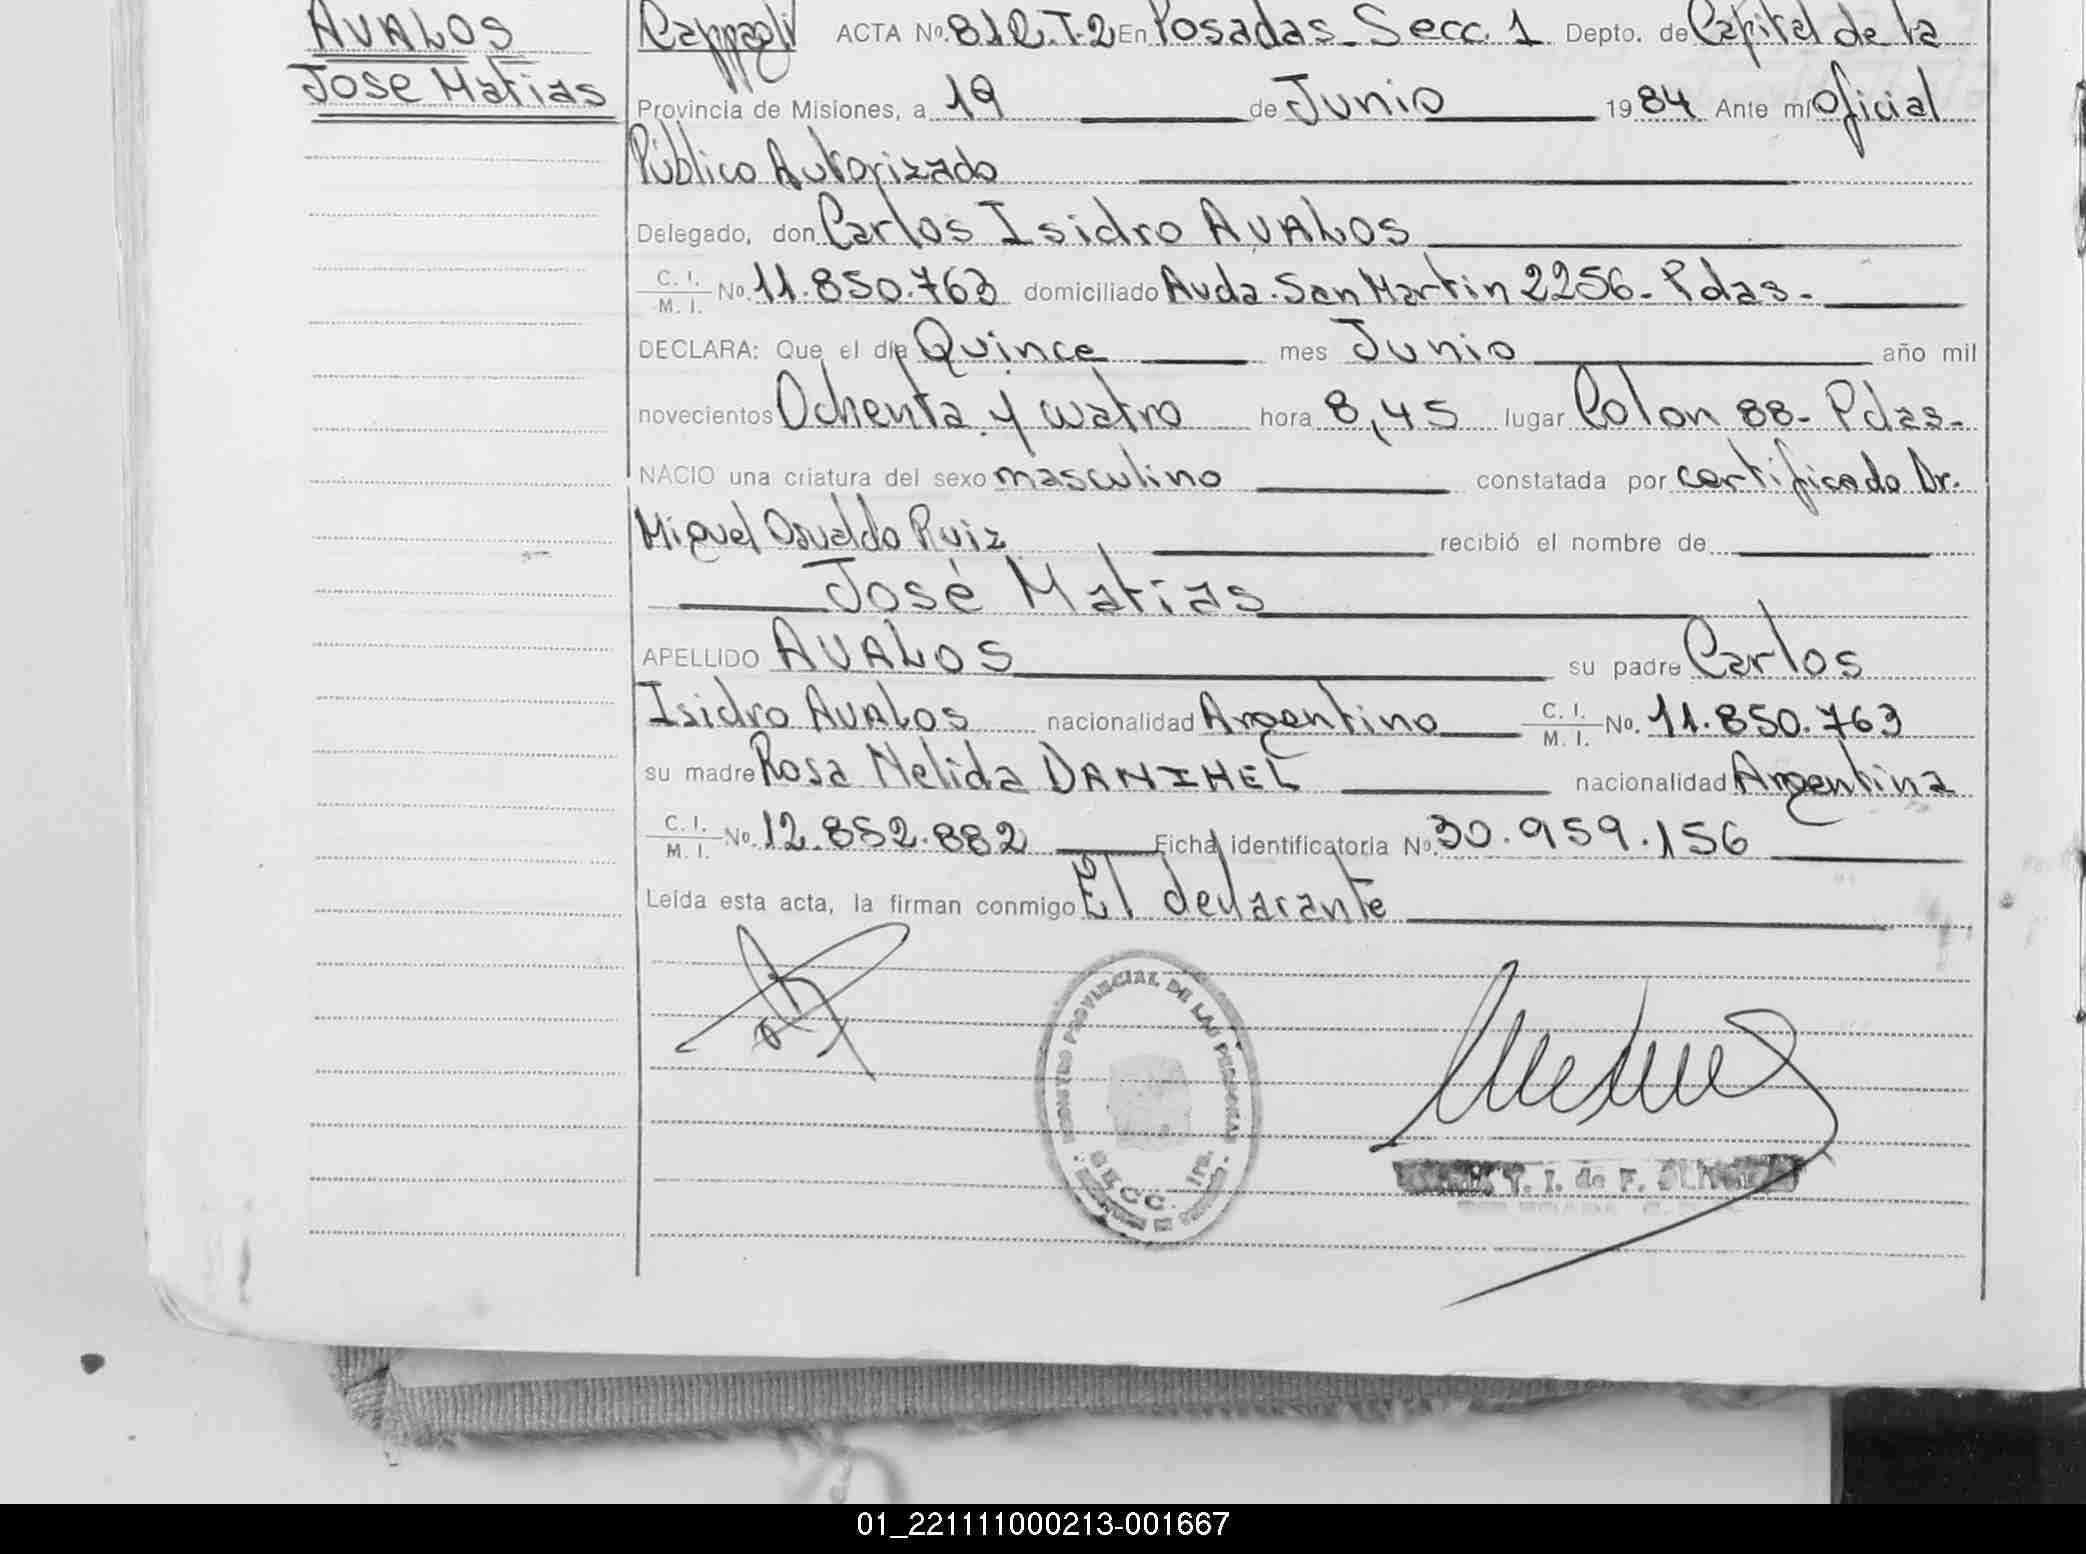 AVALOS
Jose Matias
ACTA No. 812.T.2 En Posadas - Secc. 1 Depto. de Capital de la
Provincia de Misiones, a 19 de Junio 1984 Ante mí Oficial
Público Autorizado
Delegado, don Carlos Isidro AVALOS
C. I. / M. I. No. 11.850.763 domiciliado Avda. San Martin 2256 - Pdas -
DECLARA: Que el día Quince mes Junio año mil
novecientos Ochenta y cuatro hora 8,45 lugar Colon 88 - Pdas -
NACIO una criatura del sexo masculino constatada por certificado Dr.
Miguel Osvaldo Ruiz recibió el nombre de
José Matias
APELLIDO AVALOS su padre Carlos
Isidro AVALOS nacionalidad Argentino C. I. / M. I. No. 11.850.763
su madre Rosa Nelida DANIHEL nacionalidad Argentina
C. I. / M. I. No. 12.852.882 Ficha identificatoria No. 30.959.156
Leída esta acta, la firman conmigo El declarante
REGISTRO PROVINCIAL DE LAS PERSONAS
SECC. 1ra.
T. I. de F.
01_221111000213-001667